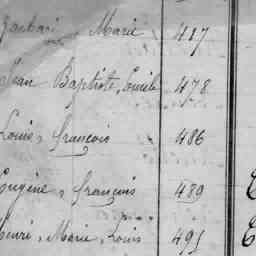 Marie 487
Jean Baptiste, Emile 478
Louis, François 486
Eugène, François 489
Henri, Marie, Louis 495